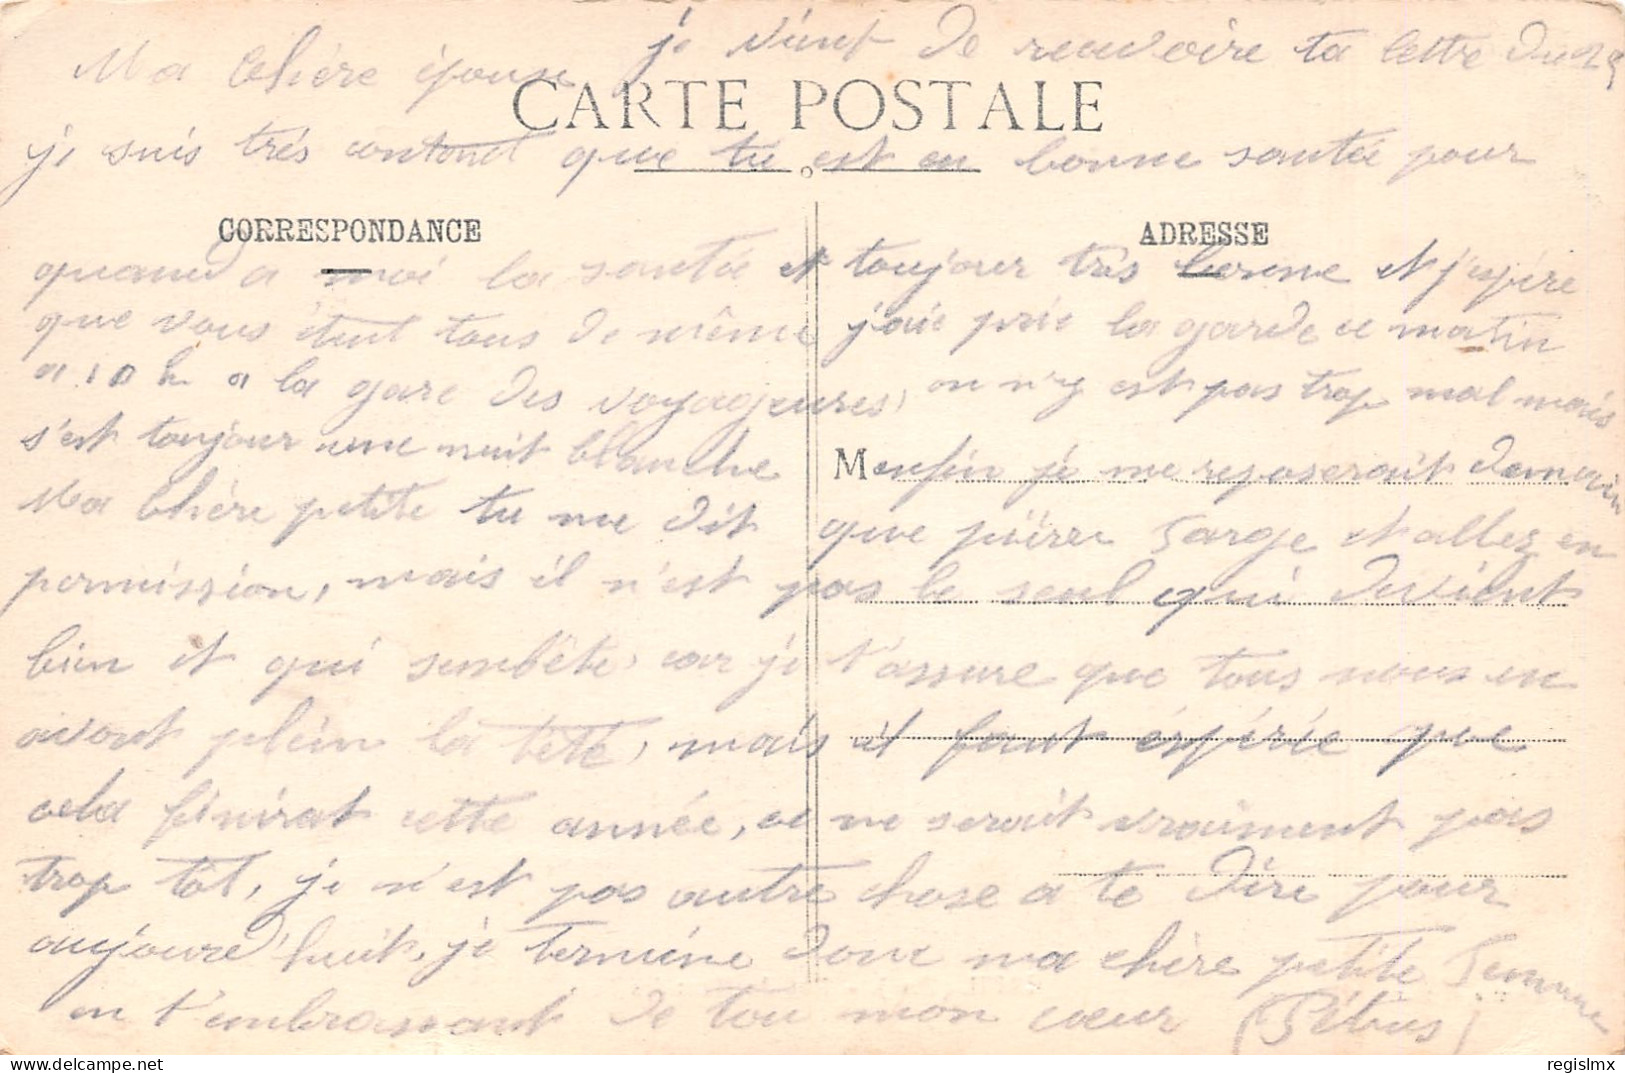 Ma chère épouse je vient de reçevoire ta lettre du 25
CARTE POSTALE
je suis très contont que tu est en bonne santée pour
CORRESPONDANCE
ADRESSE
quand a moi la santée et toujour très bonne et j'espère
que vous étent tous de même j'aie prie la garde ce matin
a 10 h a la gare des voyageures, on n'y est pas trop mal mais
s'est toujour une nuit blanche M enfin je me reposerait demain
Ma chère petite tu me dit que pierre Farge et allez en
permission, mais il n'est pas le seul qui devient
bien et qui s'embête, car je t'assure que tous nous en
avont plein la tête, mais il faut espérie que
cela finirat cette année, ce ne serait vraiment pas
trop tôt, je n'est pas autre chose a te dire pour
aujourd'huit, je termine donc ma chère petite femme
en t'embrassant de tou mon cœur (Pétrus)
regislmx